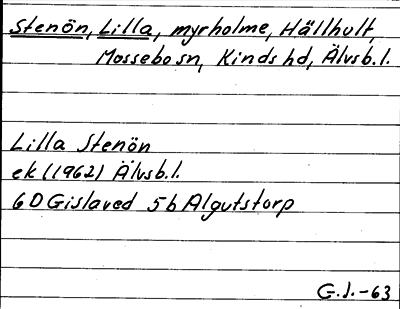 Stenön, Lilla, myrholme, Hällhult,
Mossebo sn, Kinds hd, Älvsb. l.
Lilla Stenön
ek (1962) Älvsb. l.
6D Gislaved 5b Algutstorp
G.J.-63